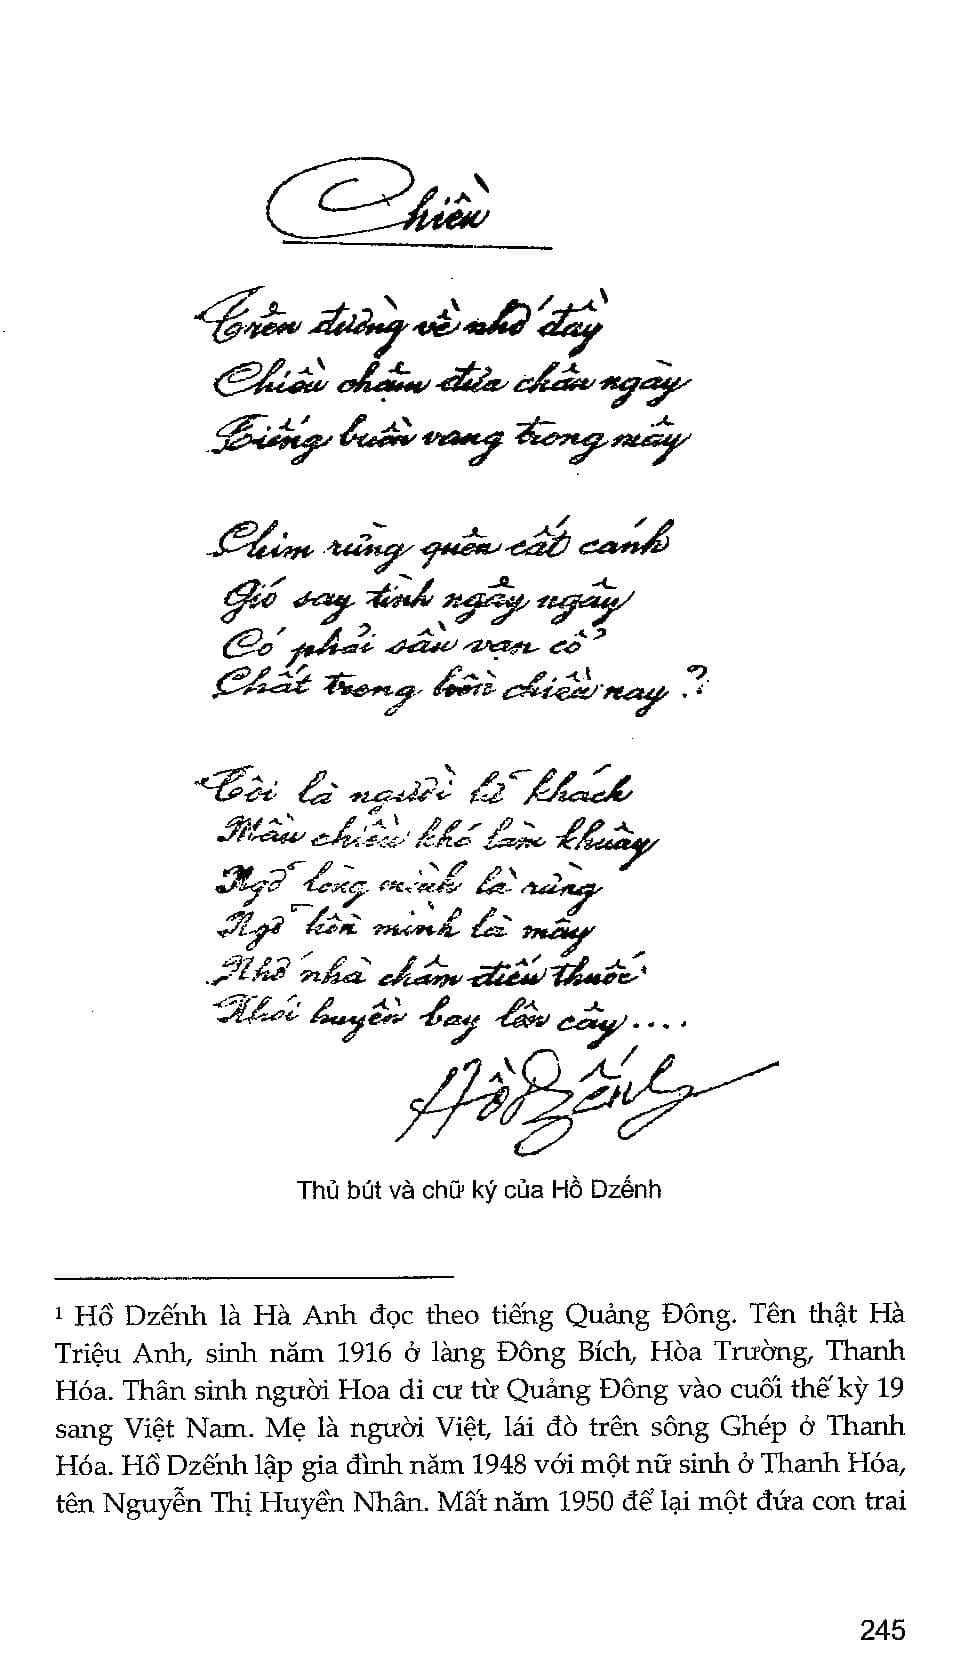 Chiều
Trên đường về nhớ đầy
Chiều chậm đưa chân ngày
Tiếng buồn vang trong mây
Chim rừng quên cất cánh
Gió say tình ngây ngây
Có phải sầu vạn cổ
Chất trong hồn chiều nay?
Tôi là người lữ khách
Mầu chiều khó làm khuây
Ngỡ lòng mình là rừng
Ngỡ hồn mình là mây
Nhớ nhà châm điếu thuốc
Khói huyền bay lên cây....
Hồ Dzếnh
Thủ bút và chữ ký của Hồ Dzếnh
1 Hồ Dzếnh là Hà Anh đọc theo tiếng Quảng Đông. Tên thật Hà
Triệu Anh, sinh năm 1916 ở làng Đông Bích, Hòa Trường, Thanh
Hóa. Thân sinh người Hoa di cư từ Quảng Đông vào cuối thế kỳ 19
sang Việt Nam. Mẹ là người Việt, lái đò trên sông Ghép ở Thanh
Hóa. Hồ Dzếnh lập gia đình năm 1948 với một nữ sinh ở Thanh Hóa,
tên Nguyễn Thị Huyền Nhân. Mất năm 1950 để lại một đứa con trai
245